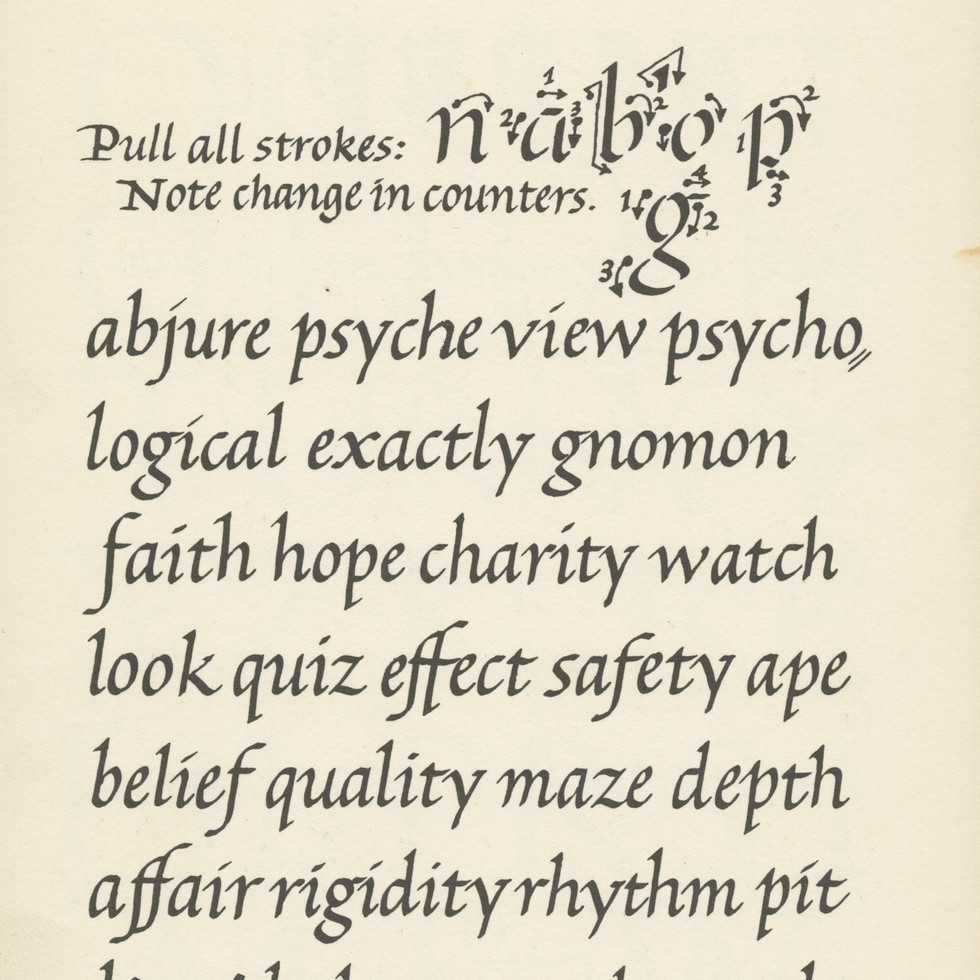 Pull all strokes: n a b o p
Note change in counters. g
abjure psyche view psycho⸗
logical exactly gnomon
faith hope charity watch
look quiz effect safety ape
belief quality maze depth
affair rigidity rhythm pit